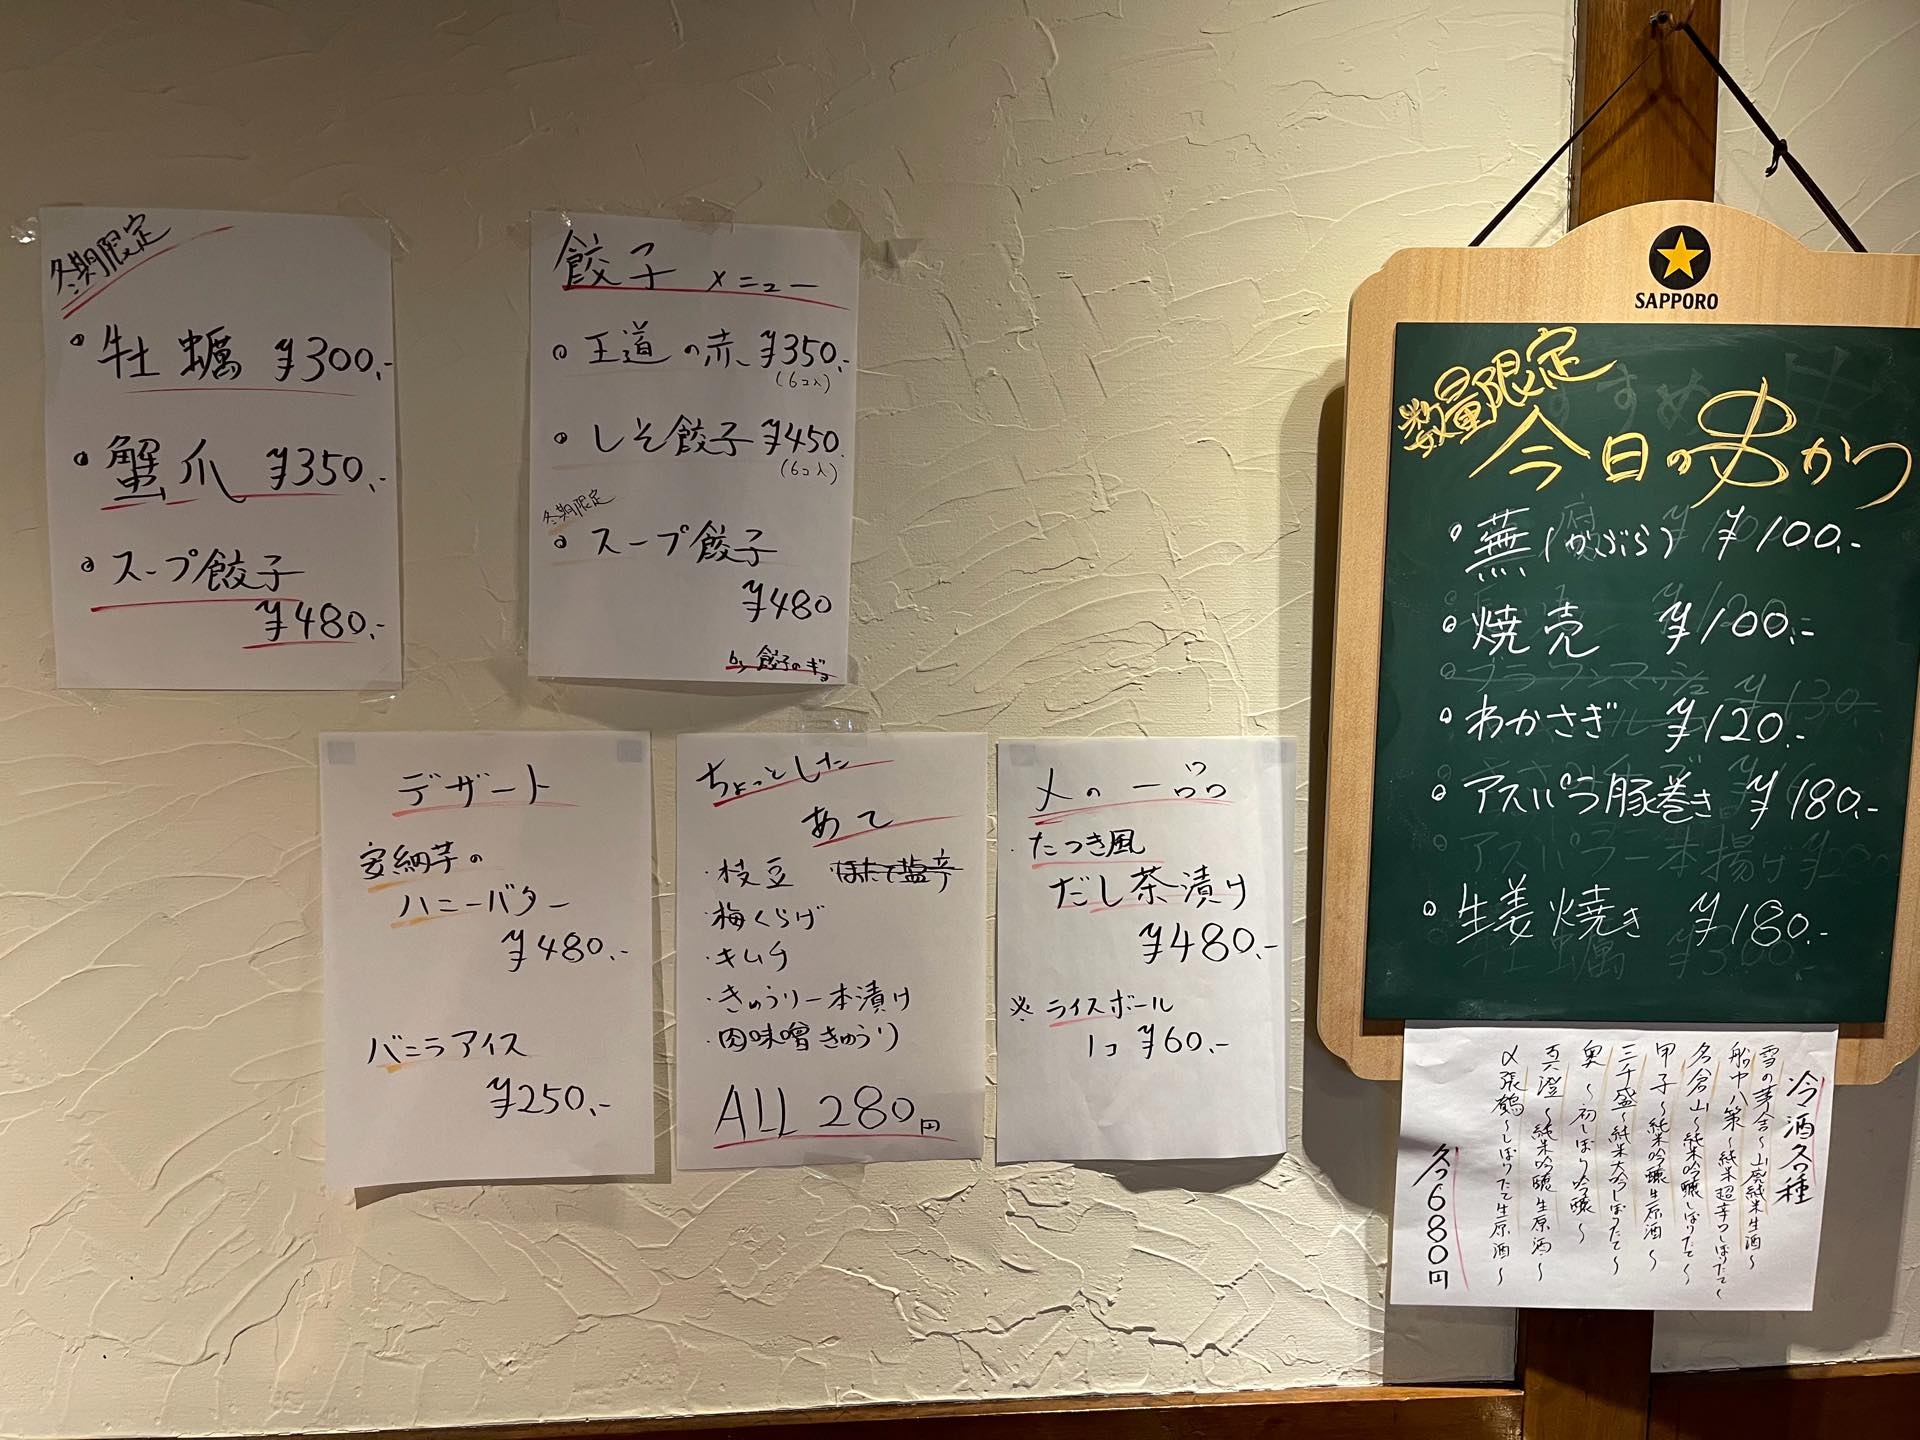 冬期限定
牡蠣 ¥300.-
蟹爪 ¥350.-
スープ餃子
¥480.-
餃子 メニュー
王道の赤 ¥350.-
(6コ入)
しそ餃子 ¥450.
(6コ入)
冬期限定
スープ餃子
¥480
by 餃子のギ
デザート
安納芋の
ハニーバター
¥480.-
バニラアイス
¥250.-
ちょっとした
あて
・枝豆 ほたて塩辛
・梅くらげ
・キムチ
・きゅうり一本漬け
・肉味噌きゅうり
ALL 280円
〆の一品
・たつき風
だし茶漬け
¥480.-
※ライスボール
1コ ¥60.-
SAPPORO
数量限定
今日の串かつ
蕪(かぶら) ¥100.-
焼売 ¥100.-
わかさぎ ¥120.-
アスパラ豚巻き ¥180.-
生姜焼き ¥180.-
冷酒各種
雪の茅舎～山廃純米生酒～
船中八策～純米超辛口しぼりたて～
名倉山～純米吟醸しぼりたて～
甲子～純米吟醸生原酒～
三千盛～純米大吟しぼりたて～
奥～初しぼり吟醸～
真澄～純米吟醸生原酒～
〆張鶴～しぼりたて生原酒～
各680円